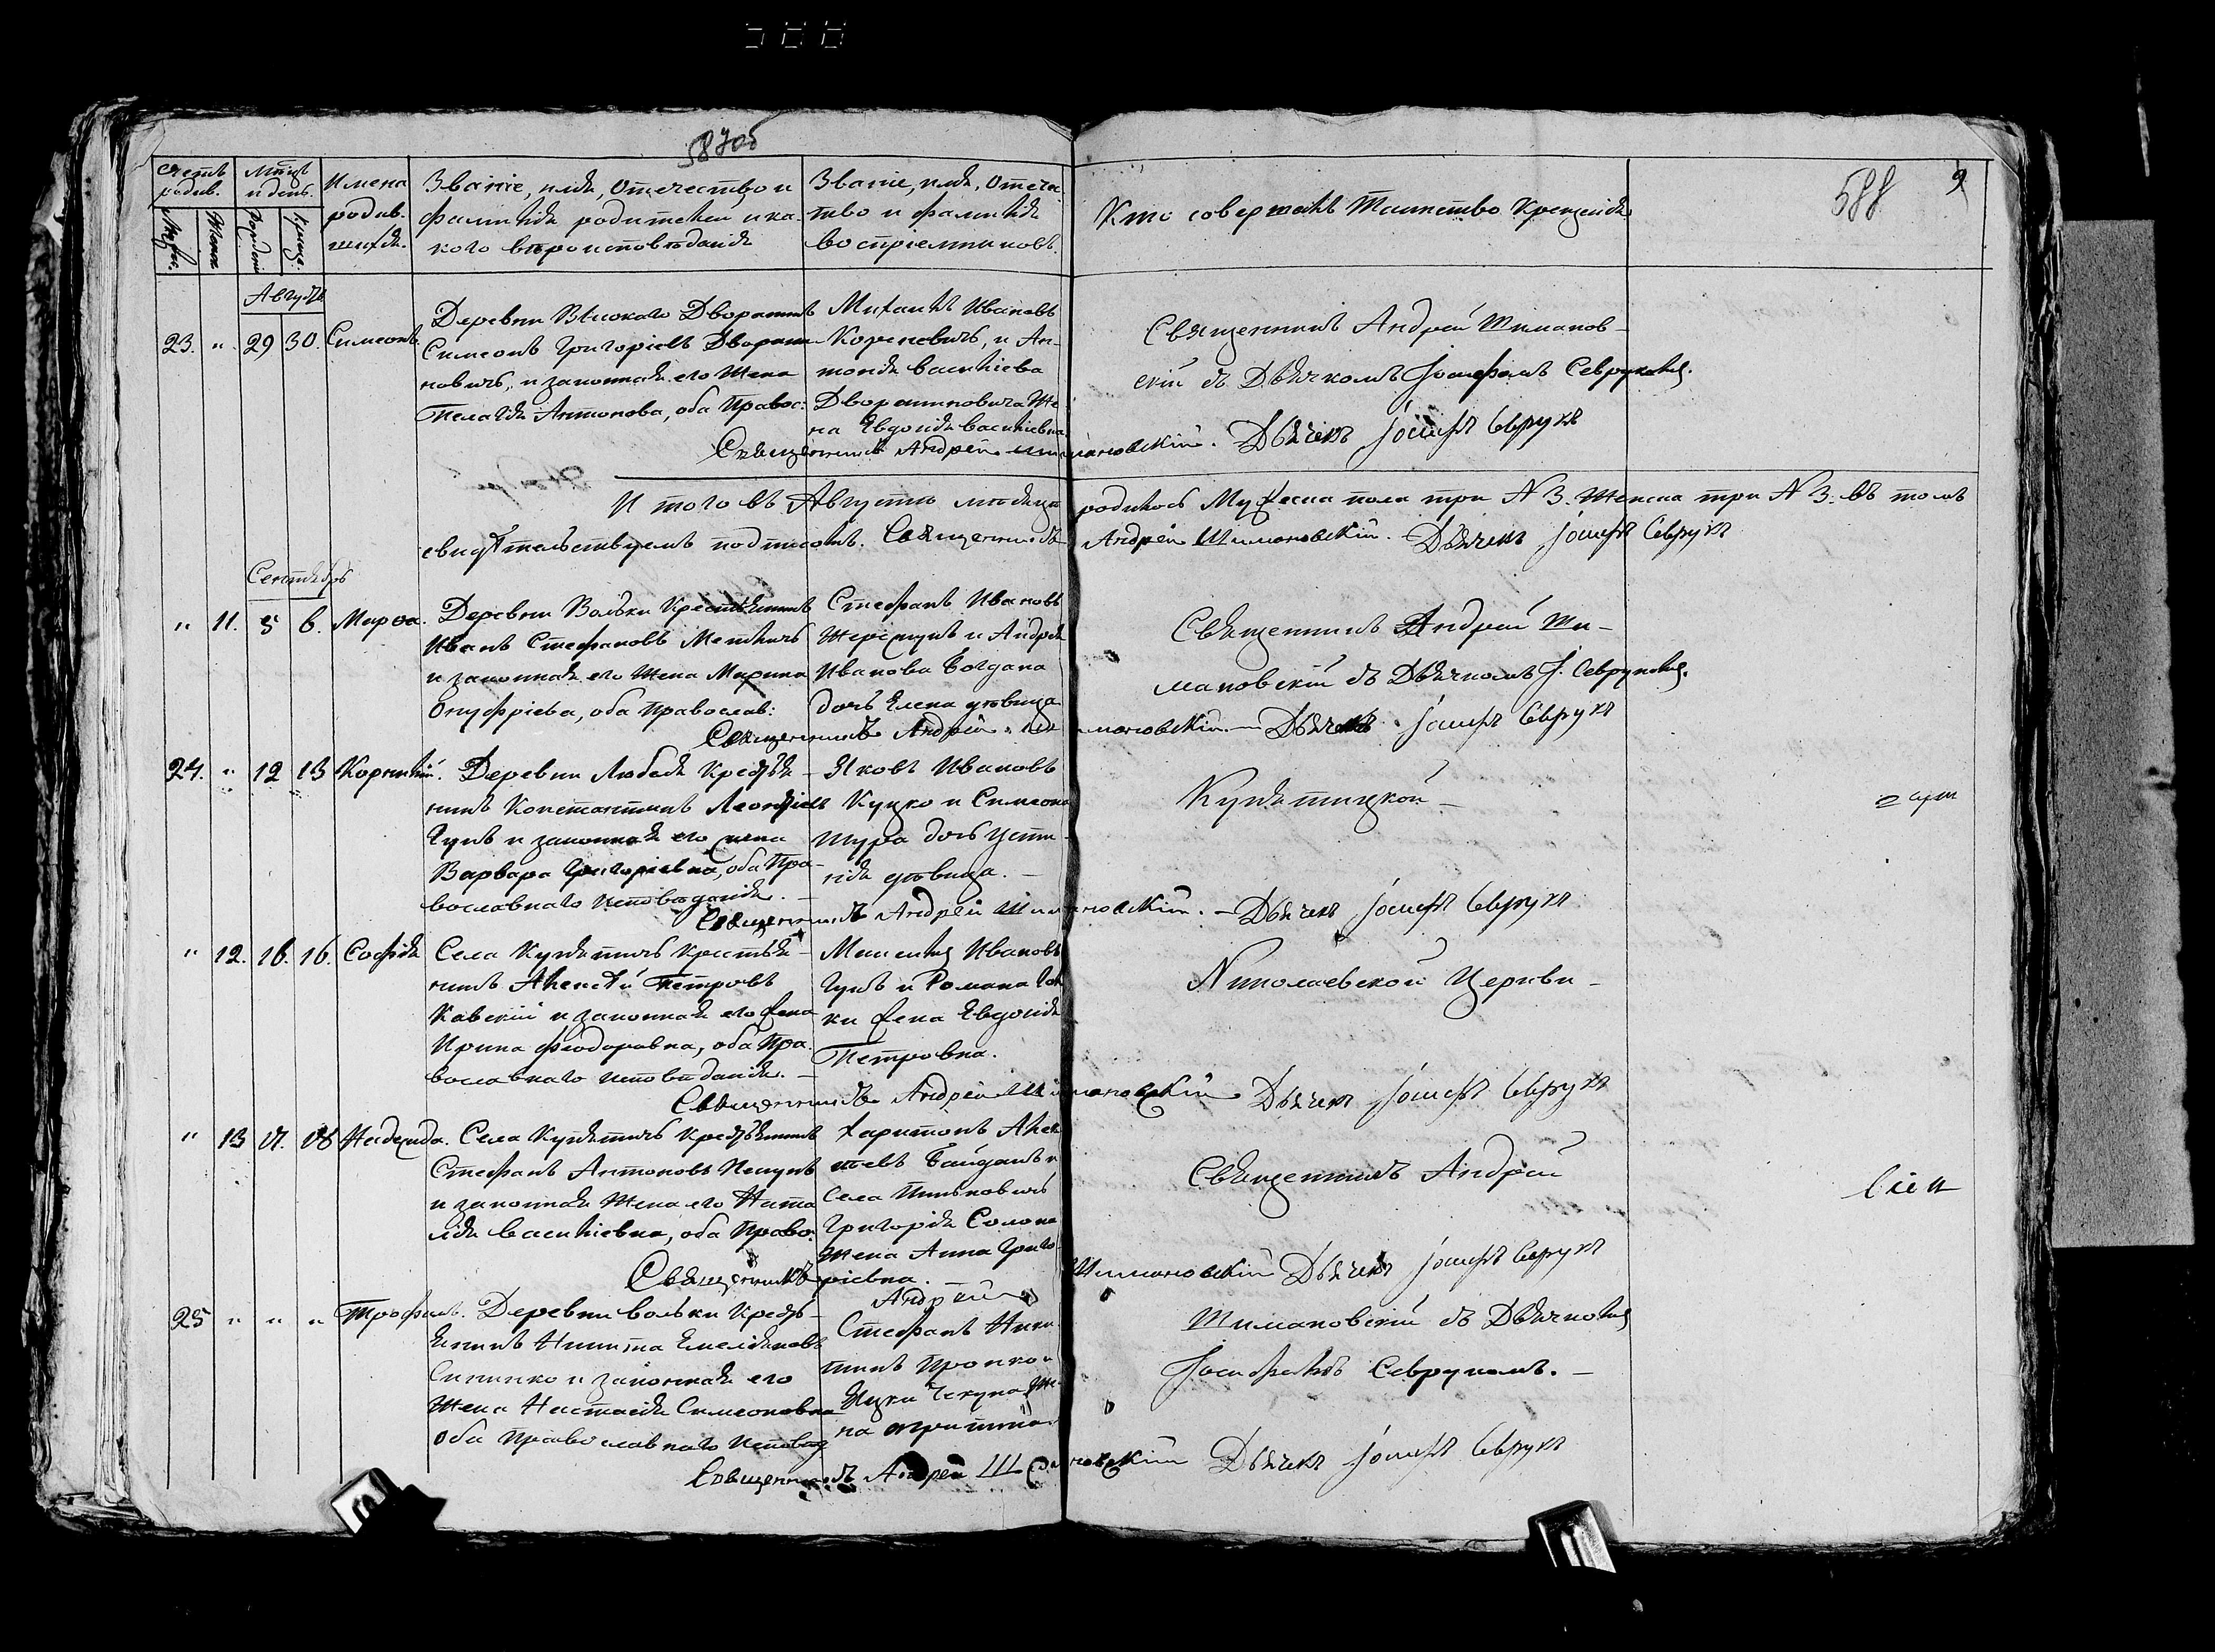 588
587об
588
9
Счетъ родив.
Мѣсяцъ и день.
Имена родив-шихся.
Званіе, имя, отечество и
фамилія родителей и ка-
кого вѣроисповѣданія
Званіе, имя, отече-
ство и фамилія
воспріемниковъ.
Кто совершалъ Таинство Крещенія
Августъ
23. " 29 30. Симеонъ.
Деревни Высокаго Дворянинъ
Симеонъ Григоріевъ Дворани-
новичъ, и законная его Жена
Пелагія Антонова, оба Правос:
Михаилъ Ивановъ
Кореневичъ, и Ан-
тонія Василіева
Двораниновича Же-
на Евдокія Василіевна
Священникъ Андрей Шиманов-
скій съ Дьячкомъ Іосифомъ Севрукомъ.
Священникъ Андрей Шимановскій. Дьячекъ Іосифъ Севрукъ
И того въ Августѣ мѣсяцѣ родилось Мужеска пола три N 3. Женска три N 3. въ томъ
свидѣтельствуемъ подписомъ. Священникъ Андрей Шимановскій. Дьячекъ Іосифъ Севрукъ
Сентябрь
" 11. 5 6. Марѳа.
Деревни Вольки Крестьянинъ
Иванъ Стефановъ
и законная его Жена Марина
Онуфріева, оба Православ:
Стефанъ Ивановъ
и Андрея
Иванова Богдана
дочь Елена дѣвица
Священникъ Андрей Ши-
мановскій съ Дьячкомъ І. Севрукомъ.
Священникъ Андрей Шимановскій. — Дьячекъ Іосифъ Севрукъ
24. " 12 13 Корнилій.
Деревни Любеля Крестья-
нинъ Константинъ Леонтіевъ
Гукъ и законная его жена
Варвара Григоріевна, оба Пра-
вославнаго Исповѣданія. —
Яковъ Ивановъ
Куцко и Симеона
Шура дочь Усти-
нія дѣвица. —
Купятицкой —
Священникъ Андрей Шимановскій. — Дьячекъ Іосифъ Севрукъ
" 12. 16. 16. Софія
Села Купятичъ Крестья-
нинъ Алексѣй Петровъ
Кавскій и законная его жена
Ирина Феодоровна, оба Пра-
вославнаго исповѣданія. —
Ивановъ
Гукъ и Романа
ки жена Евдокія
Петровна.
Николаевской Церкви —
Священникъ Андрей Шимановскій Дьячекъ Іосифъ Севрукъ
" 13 17. 18 Надежда.
Села Купятичъ Крестьянинъ
Стефанъ Антоновъ
и законная Жена его Ната-
лія Василіевна, оба Право:
Харитонъ Алек-
сѣевъ Байданъ и
Села Пинковичъ
Григорія Солона
Жена Анна Григо-
ріевна. —
Священникъ Андрей
Священникъ Андрей Шимановскій Дьячекъ Іосифъ Севрукъ
25 " " " Трофимъ.
Деревни Вольки Кресть-
янинъ Никита Емеліановъ
и законная его
Жена Настасія Симеоновна
оба Православнаго Исповѣд
Стефанъ Ники-
тинъ Пронко и
Чекуна Же-
на
Шимановскій съ Дьячкомъ
Іосифомъ Севрукомъ. —
Священникъ Андрей Шимановскій Дьячекъ Іосифъ Севрукъ